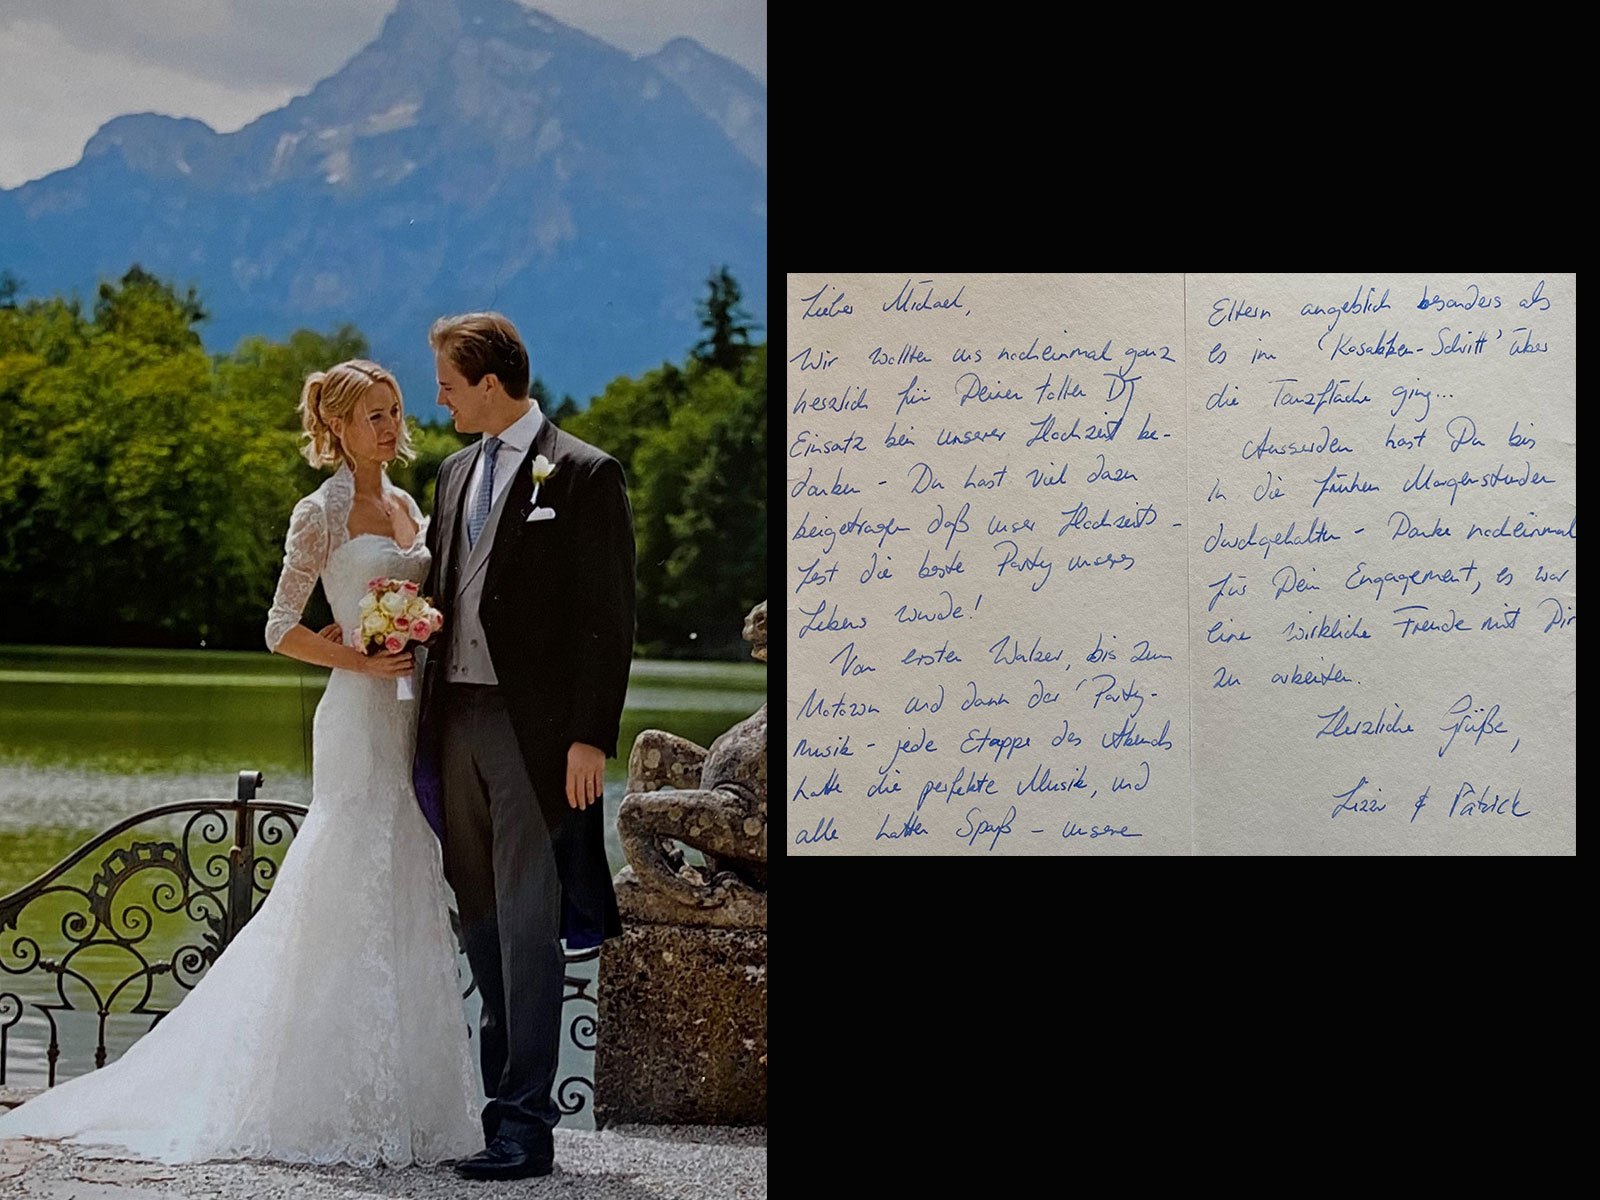 Lieber Michael,
Wir wollten uns nocheinmal ganz
herzlich für Deinen tollen DJ
Einsatz bei unserer Hochzeit be-
danken - Du hast viel dazu
beigetragen daß unser Hochzeits-
fest die beste Party unseres
Lebens wurde!
Vom ersten Walzer, bis zum
und dann der 'Party-
musik - jede Etappe des Abends
hatte die perfekte Musik, und
alle hatten Spaß - unsere
Eltern angeblich besonders als
es im 'Kosakken-Schritt' über
die Tanzfläche ging...
Ausserden hast Du bis
in die frühen Morgenstunden
durchgehalten - Danke nocheinmal
für Dein Engagement, es war
eine wirkliche Freude mit Dir
zu arbeiten.
Herzliche Grüße,
Lizzi & Patrick